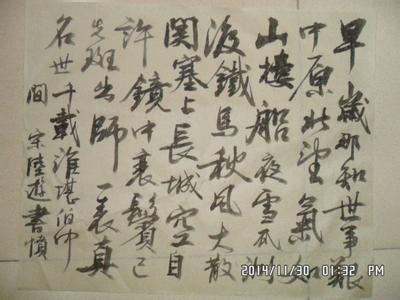 早歲那知世事艱
中原北望氣如
山樓船夜雪瓜洲
渡鐵馬秋風大散
關塞上長城空自
許鏡中衰鬢已
先斑出師一表真
名世千載誰堪伯仲
間 宋陸游書憤
2014/11/30 01:32 PM